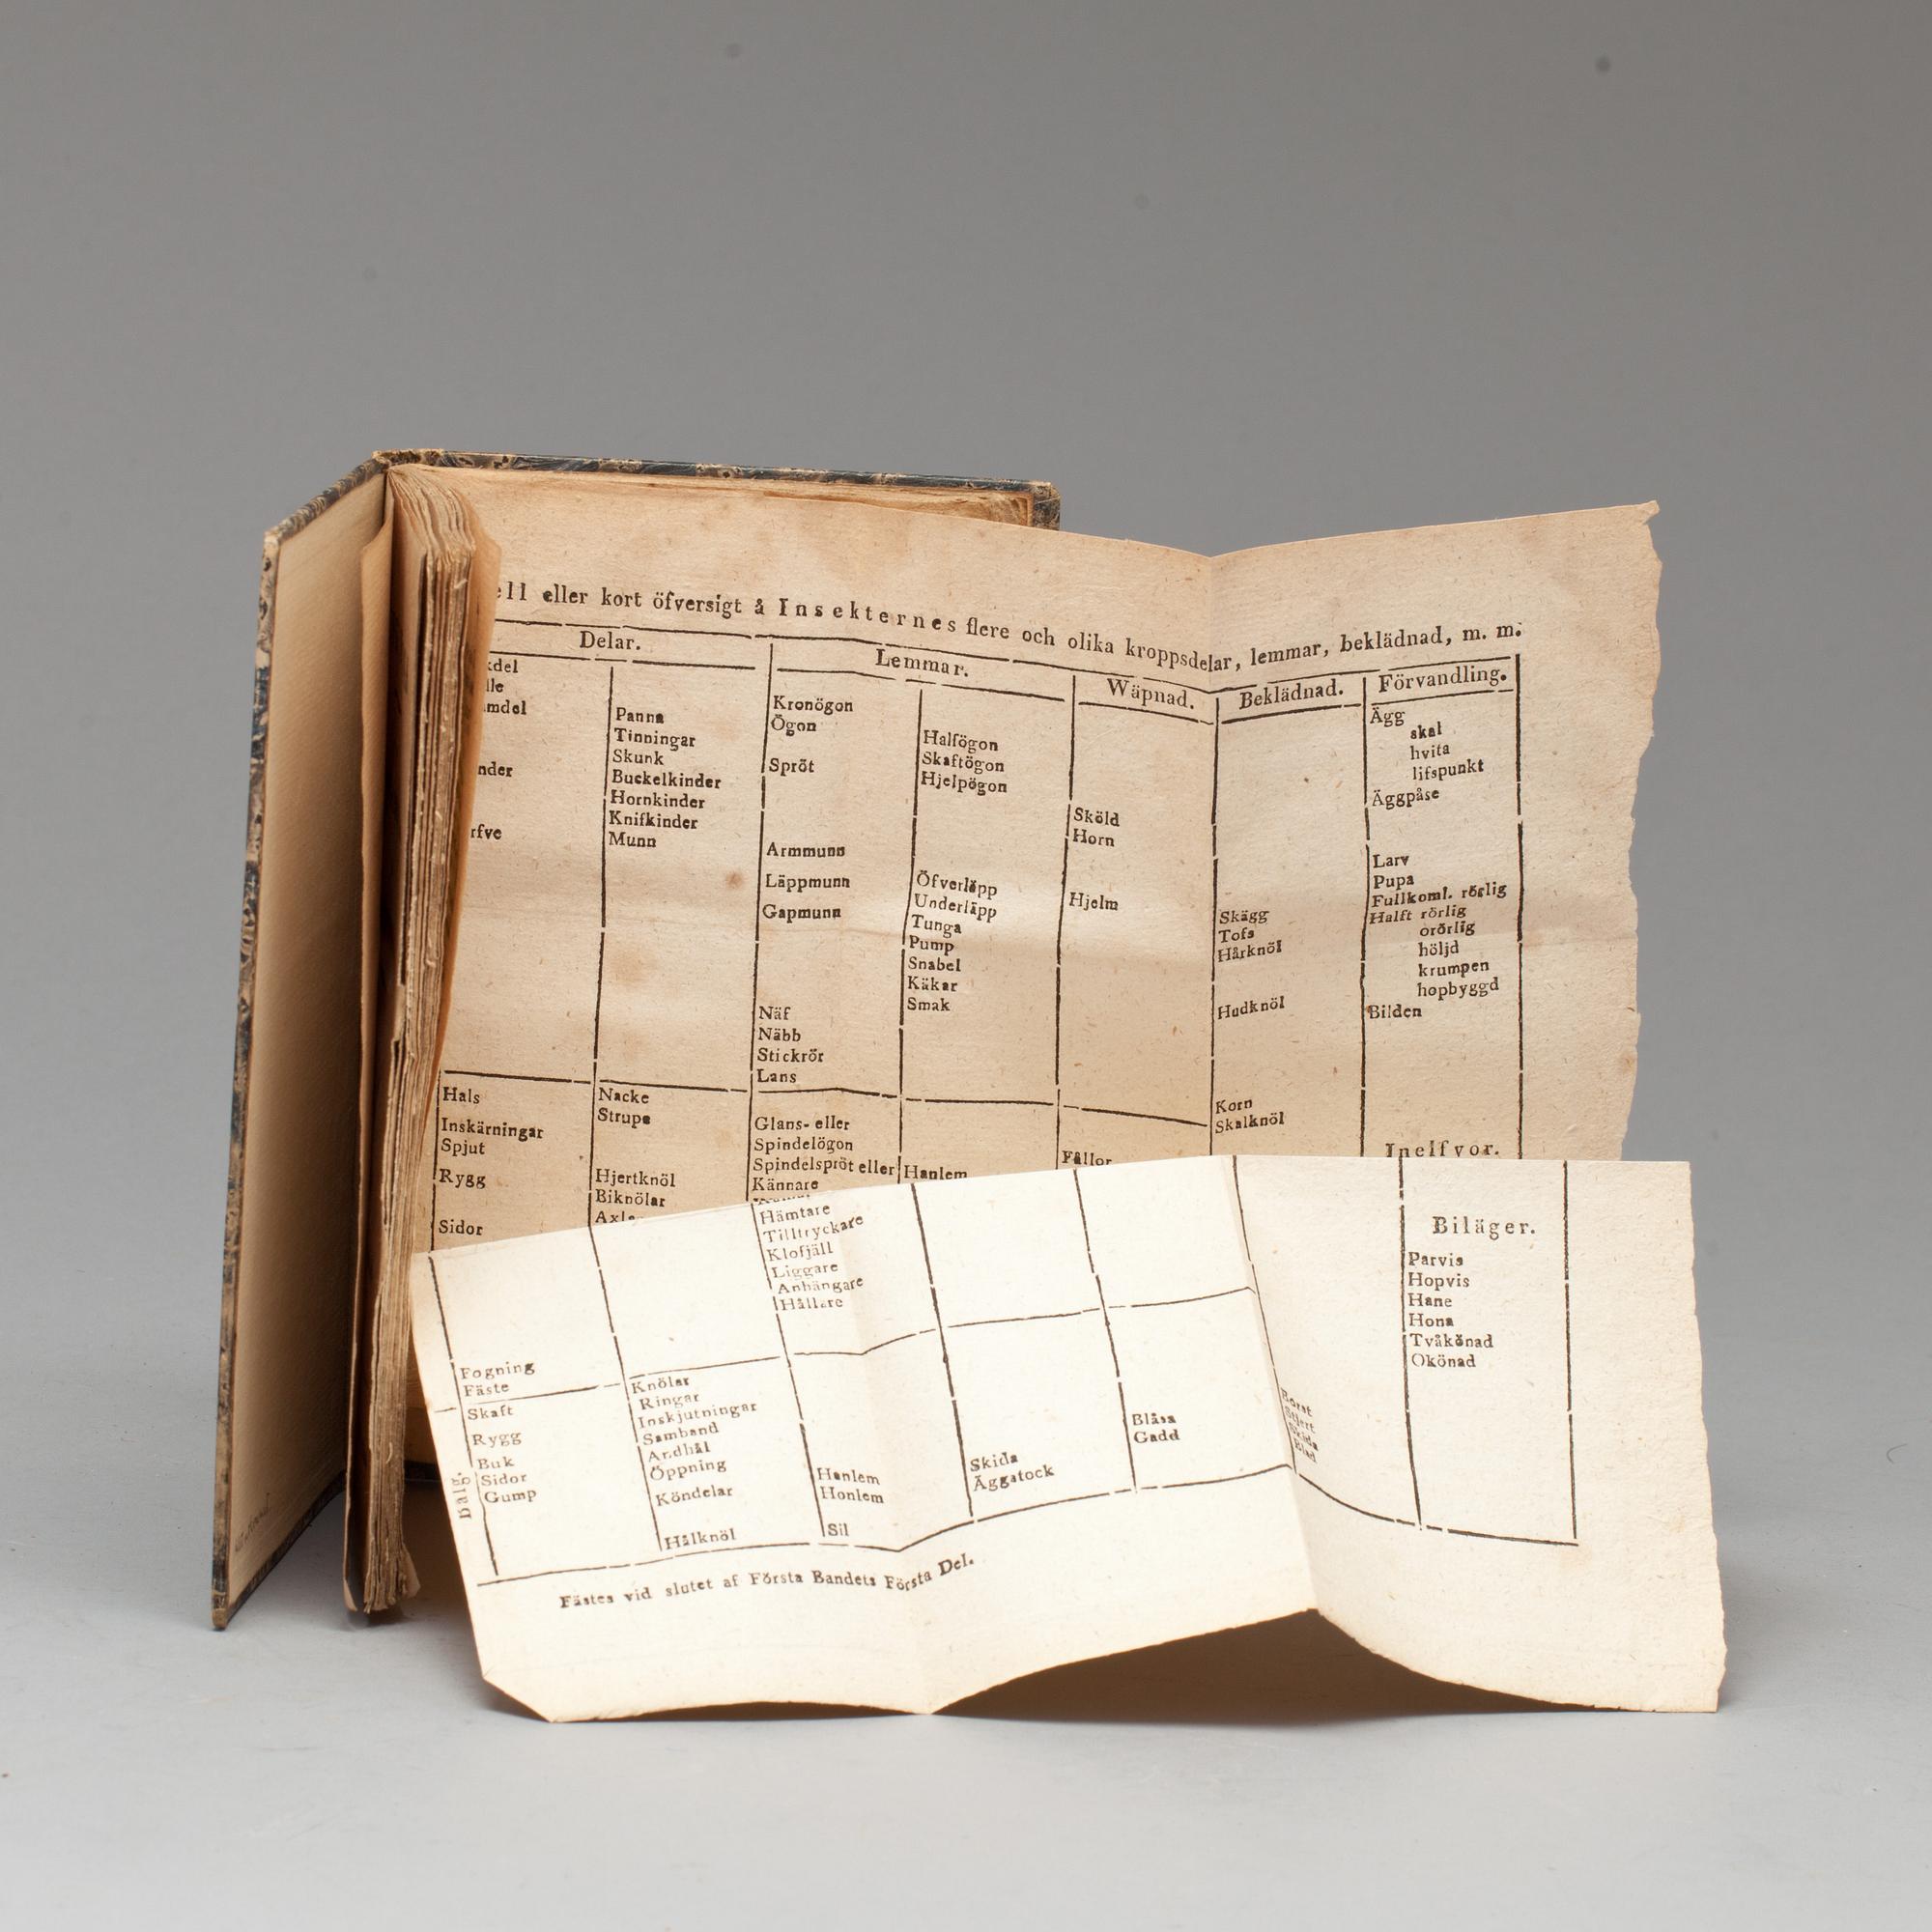 eller kort öfversigt å Insekternes flere och olika kroppsdelar, lemmar, beklädnad, m. m.
Delar.
Lemmar.
Wäpnad.
Beklädnad.
Förvandling.
Panna
Tinningar
Skunk
Buckelkinder
Hornkinder
Knifkinder
Munn
Kronögon
Ögon
Spröt
Armmunn
Läppmunn
Gapmunn
Näf
Näbb
Stickrör
Lans
Halfögon
Skaftögon
Hjelpögon
Öfverläpp
Underläpp
Tunga
Pump
Snabel
Käkar
Smak
Sköld
Horn
Hjelm
Skägg
Tofs
Hårknöl
Hudknöl
Korn
Skalknöl
Ägg
skal
hvita
lifspunkt
Äggpåse
Larv
Pupa
Fullkoml. rörlig
Halft rörlig
orörlig
höljd
krumpen
hopbyggd
Bilden
Hals
Inskärningar
Spjut
Rygg
Sidor
Nacke
Strupe
Hjertknöl
Biknölar
Glans- eller
Spindelögon
Spindelspröt eller
Kännare
Hanlem
Fållor
Inelfvor.
Hämtare
Tilltryckare
Klofjäll
Liggare
Anhängare
Hållare
Biläger.
Parvis
Hopvis
Hane
Hona
Tvåkönad
Okönad
Fogning
Fäste
Skaft
Rygg
Buk
Sidor
Gump
Balg.
Knölar
Ringar
Inskjutningar
Samband
Andhål
Öppning
Köndelar
Hålknöl
Hanlem
Honlem
Sil
Skida
Äggstock
Blåsa
Gadd
Borst
Stjert
Skida
Blad
Fästes vid slutet af Första Bandets Första Del.